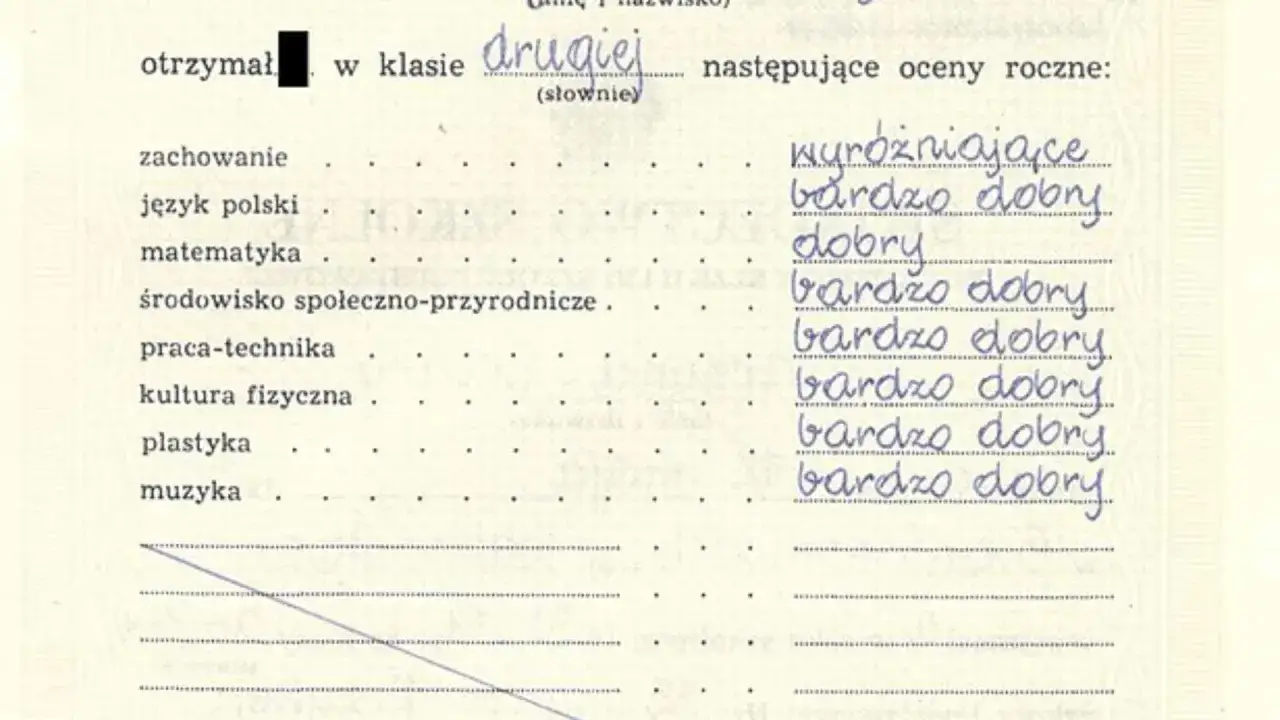 (imię i nazwisko)
otrzymał w klasie drugiej następujące oceny roczne:
(słownie)
zachowanie . . . . . . . . . wyróżniające
język polski . . . . . . . . . bardzo dobry
matematyka . . . . . . . . . dobry
środowisko społeczno-przyrodnicze . . . . bardzo dobry
praca-technika . . . . . . . . . bardzo dobry
kultura fizyczna . . . . . . . . . bardzo dobry
plastyka . . . . . . . . . . bardzo dobry
muzyka . . . . . . . . . . bardzo dobry